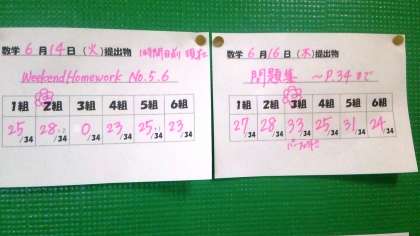 数学 6 月 14 日 (火)提出物
Weekend Homework No.5.6
1組 2組 3組 4組 5組 6組
25/34 28/34 0/34 23/34 25/34 23/34
数学 6 月 16 日 (木)提出物
問題集 ～P.34まで
1組 2組 3組 4組 5組 6組
27/34 28/34 33/34 25/34 31/34 24/34